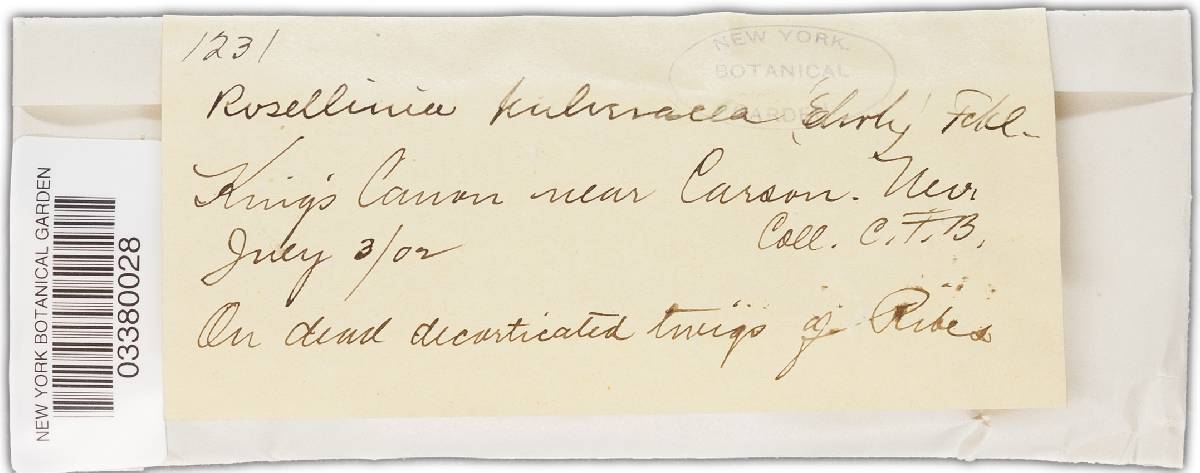 1231
NEW YORK
BOTANICAL
GARDEN
Rosellinia pulveracea (Ehrh) Fckl.
King's Canon near Carson. Nev
July 3/02
Coll. C.F.B.
On dead decorticated twigs of Ribes
NEW YORK BOTANICAL GARDEN
03380028